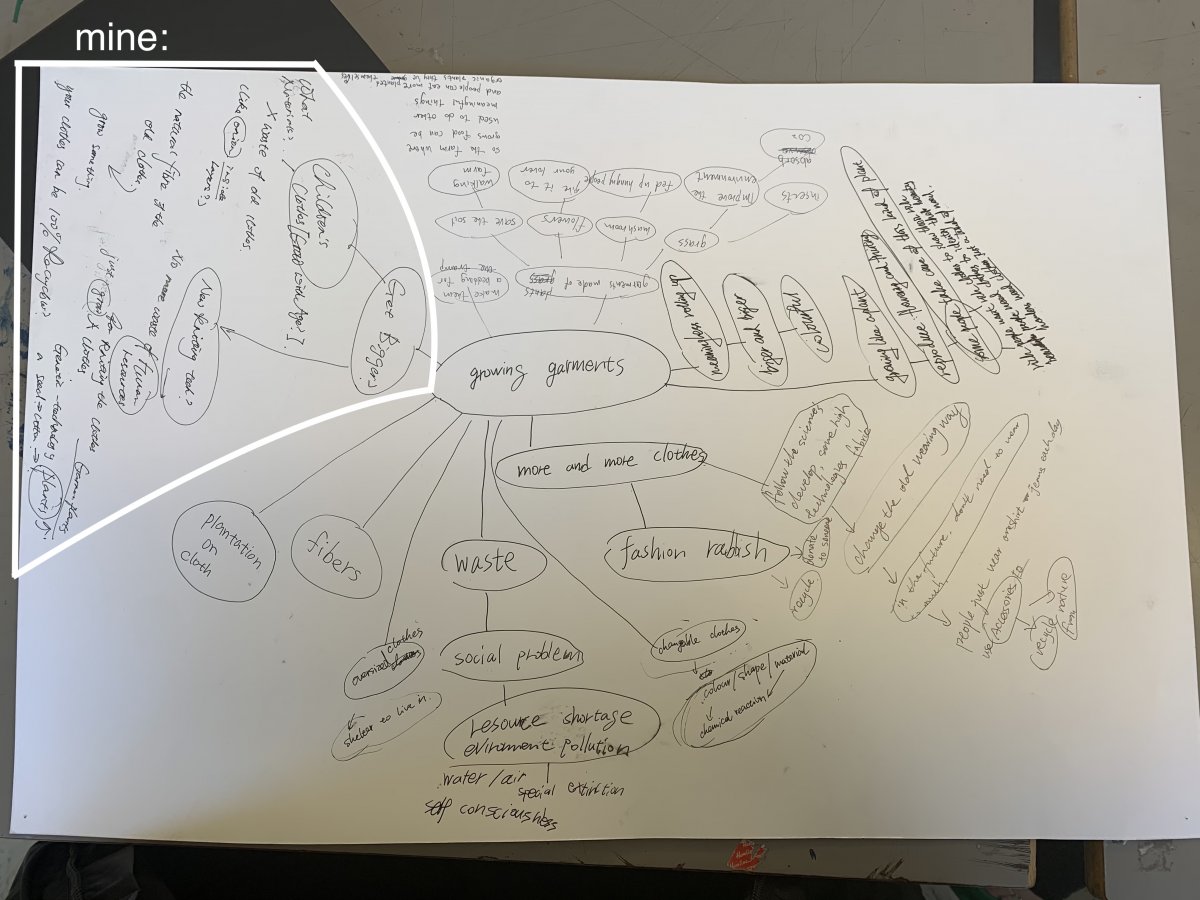 mine:
What
Materials?
X waste of old clothes
(like onion inside
layers?)
the natural fibre of the
old clothes
grow something
your clothes can be 100% Recycled?
Children's
Clothes
Get Bigger?
New Knitting tech?
No more waste of Human
resources
just grow X
for Knitting the clothes
Genetic-technology
a seed → cotton →
Plants
so the farm where
grows food can be
used to do other
meaningful things
and people can eat more
organic plants they've planted themselves
walking
farm
give it to
your lover
fed up hungry people
improve the
environment
absorb
CO2
insects
save the soil
flowers
mushroom
grass
make them
a bedding for
one tramp
garments made of
plants
growing garments
meaningless rolling up
bigger and
bigger
growing like a plant
reproduce
some people take care of this kind of plant
more and more clothes
follow the sciences
develop, some high
technologies fabric
change the old wearing way
in the future. don't need to wear
much
people just wear one shirt or jeans each day
use accessories to
recycle
nature
from
fashion rabbish
donate
to someone
recycle
plantation
on
cloth
fibers
waste
social problem
resource shortage
evironment pollution
water/air
special extinction
self consciousness
oversized
clothes
shelter to live in
changable clothes
colour/shape/material
chemical reaction